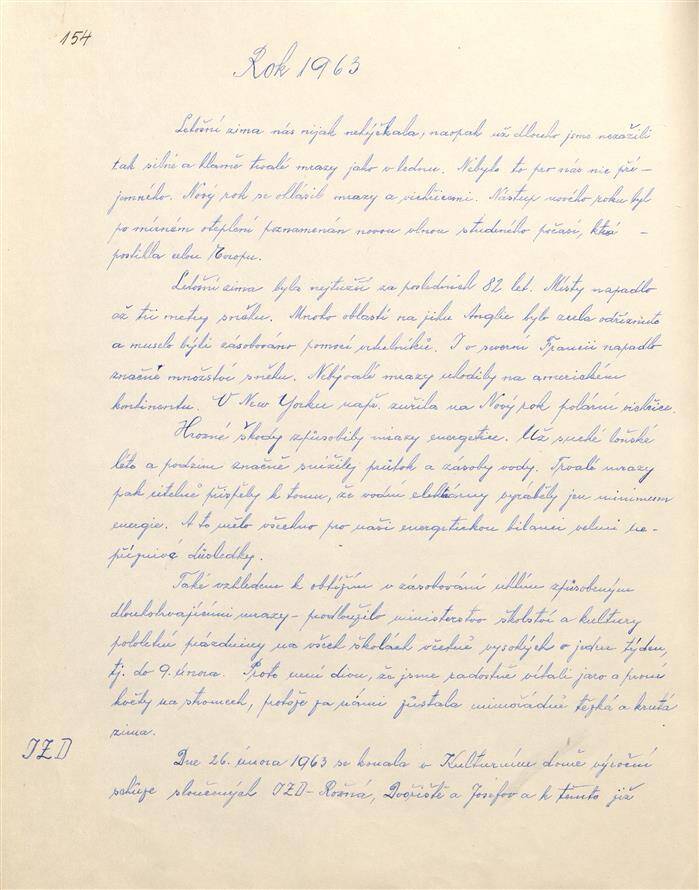 154
Rok 1963
Letošní zima nás nijak nehýčkala, naopak už dlouho jsme nezažili
tak silné a hlavně trvalé mrazy jako v lednu. Nebylo to pro nás nic pří-
jemného. Nový rok se ohlásil mrazy a vichřicemi. Nástup nového roku byl
po mírném oteplení poznamenán novou vlnou studeného počasí, která -
postihla celou Evropu.
Letošní zima byla nejtužší za posledních 82 let. Místy napadlo
až tři metry sněhu. Mnoho oblastí na jihu Anglie bylo zcela odříznuto
a muselo býti zásobováno pomocí vrtulníků. I v severní Francii napadlo
značné množství sněhu. Nebývalé mrazy uhodily na americkém
kontinentu. V New Yorku např. zuřila na Nový rok polární vichřice.
Hrozné škody způsobily mrazy energetice. Už suché loňské
léto a podzim značně snížily průtok a zásoby vody. Trvalé mrazy
pak citelně přispěly k tomu, že vodní elektrárny vyráběly jen minimum
energie. A to mělo všechno pro naši energetickou bilanci velmi ne-
příznivé důsledky.
Také vzhledem k obtížím v zásobování uhlím způsobeným
dlouhotrvajícími mrazy - prodloužilo ministerstvo školství a kultury
pololetní prázdniny na všech školách včetně vysokých o jeden týden,
tj. do 9. února. Proto není divu, že jsme radostně vítali jaro a první
květy na stromech, protože za námi zůstala mimořádně těžká a krutá
zima.
JZD
Dne 26. února 1963 se konala v Kulturním domě výroční
schůze sloučených JZD - Rožná, Dvořiště a Josefov a k těmto již